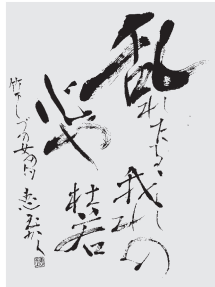 乱れたる
我れの
心や
杜若
竹下しづの女の句